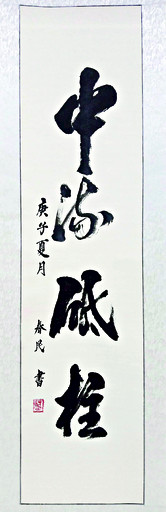 中流砥柱
庚子夏月
春民书